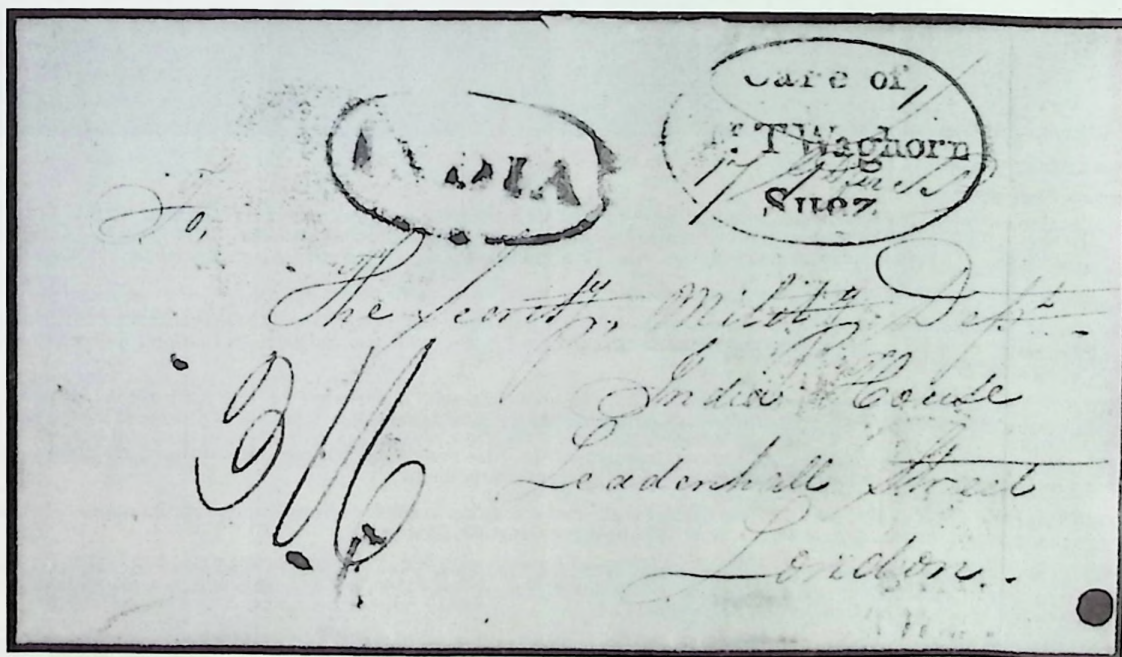 INDIA
Care of
Mr T Waghorn
Suez
To,
The Secrety Mility Dept
India House
Leadenhall Street
London.
3/6